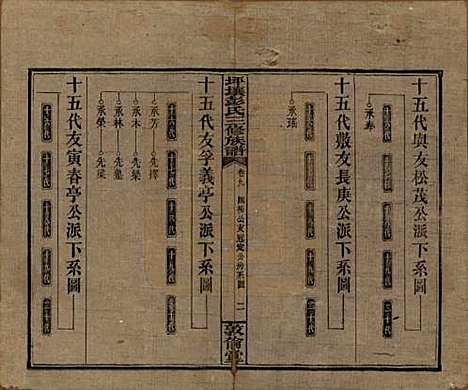 十五代奧友松茂公派下系圖
十六代 十七代 十八代 十九代 二十代
承壽
十五代敷友長庚公派下系圖
十六代 十七代 十八代 十九代 二十代
承瑤
坪壤彭氏三修族譜
卷九
二
敦倫堂
十五代友孚義亭公派下系圖
十六代 十七代 十八代 十九代 二十代
承方 先擇
承木 先榮
承林 先鑾
承榮 先梁
十五代友寅春亭公派下系圖
十六代 十七代 十八代 十九代 二十代